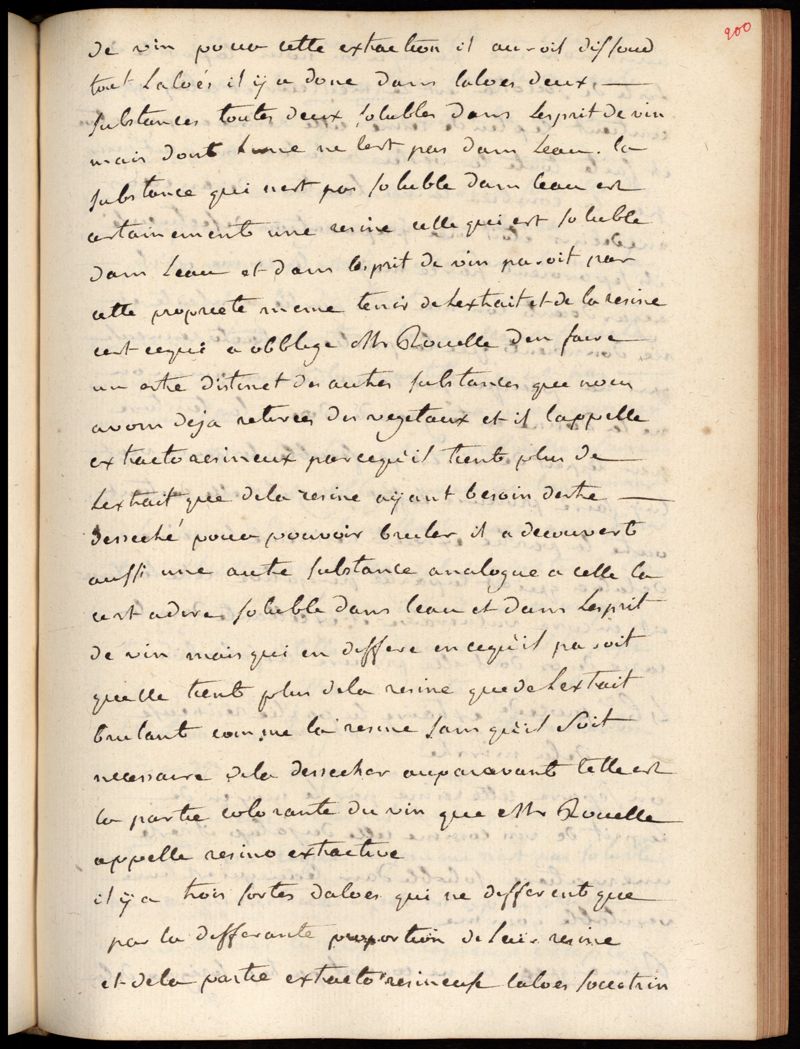 200
de vin pour cette extraction il auroit dissoud
tout Laloés il ÿ a donc dans laloes deux —
substances toutes deux solubles dans Lesprit de vin
mais dont Lune ne lest pas dans Leau. la
substance qui nest pas soluble dans leau est
certainement une resine celle qui est soluble
dans Leau et dans lesprit de vin paroit par
cette propriete meme tenir de Lextrait et de la resine
cest cequi a obblegé Mr Rouelle den faire
un estre distinct des autres substances que nous
avons deja retirées des vegetaux et il lappelle
extractoresineux parcequil tient plus de
Lextrait que dela resine aÿant besoin destre —
desseché pour pouvoir bruler il a decouvert
aussi une autre substance analogue a celle la
cest adire soluble dans leau et dans Lesprit
de vin mais qui en differe en cequil paroit
quelle tient plus dela resine que de Lextrait
brulant comme la resine sans quil soit
necessaire dela dessecher auparavant telle est
la partie colorante du vin que Mr Rouelle
appelle resino extractive
il ÿ a trois sortes daloes qui ne different que
par la differante proportion de leur resine
et dela partie extracto resineuse laloes soccotrin